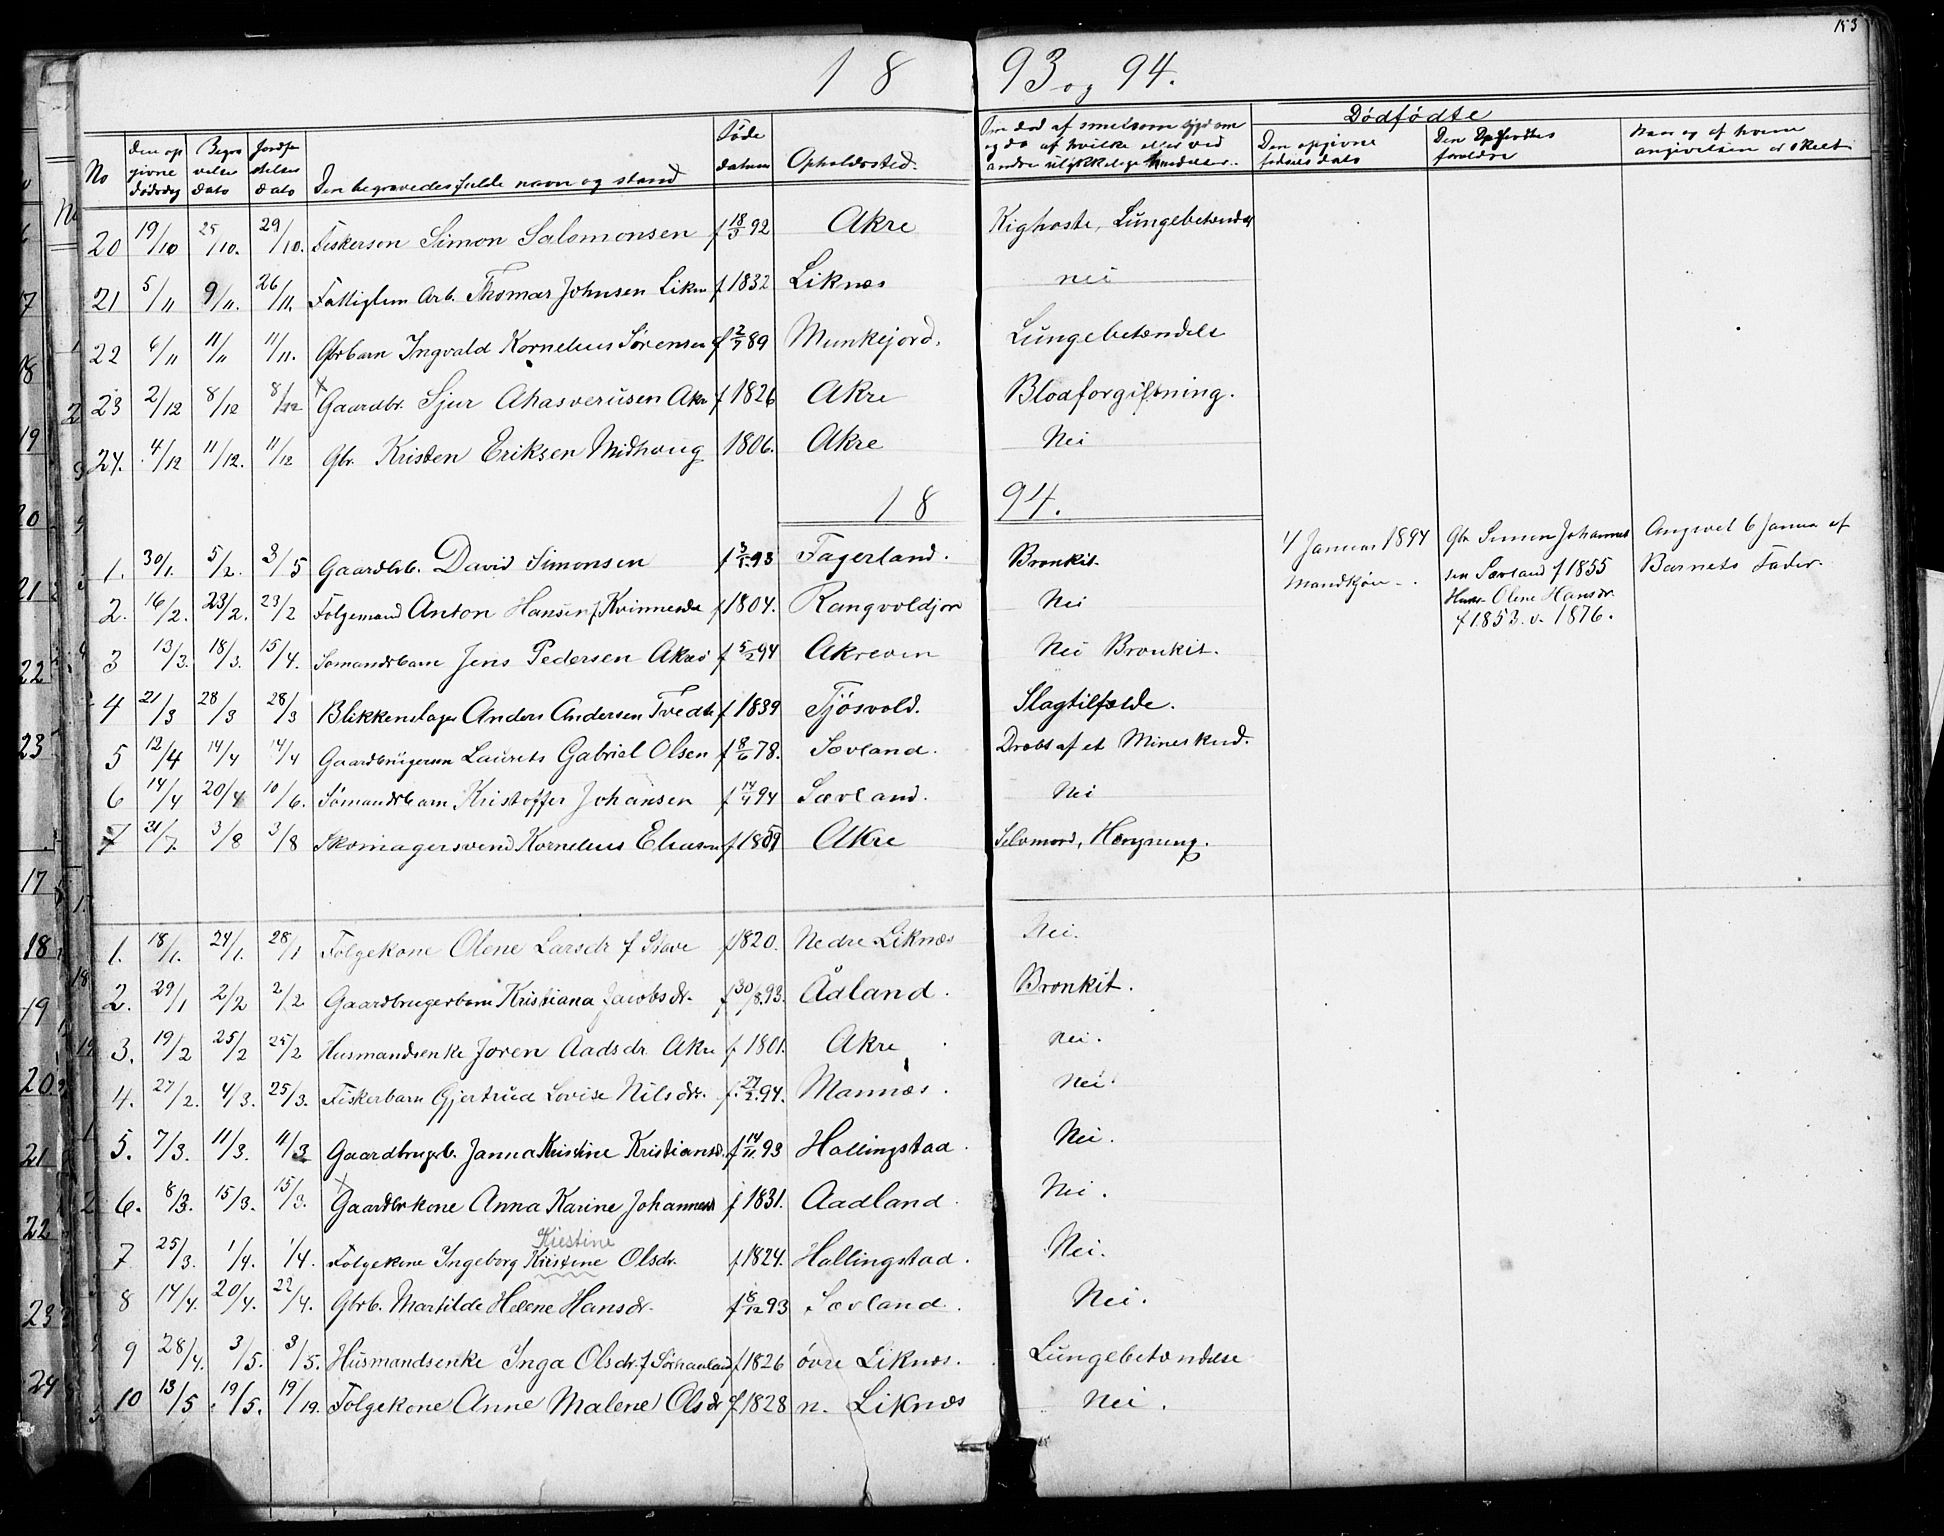 153
18 93 og 94.
No
Den op
givne
dødsdag
Begra
velses
Dato
Jordfæ
stelses
Dato
Den begravedes fulde navn og stand
Føde
datum
Opholdssted.
Dødfødte
Den opgivne
fødsels dato
forældre
Naar og af hvem
angivelsen er skeet
20 19/10 25/10. 29/10. Fiskersøn Simon Salomonsen f 18/3 92 Akre Kighoste, Lungebetændel
21 5/11 9/11. 26/11. Fattiglem Arb. Thomas Johnsen Likn f 1832 Liknæs nei
22 6/11 11/11 11/11. Gbrbarn Ingvald Kornelius Sørensen f 2/7 89 Munkejord. Lungebetændelse
23 2/12 8/12 8/12 Gaardbr. Sjur Ahasverusen Akre f 1826 Akre Blodforgiftning.
24. 4/12 11/12. 11/12 Gbr. Kristen Eriksen Midhaug 1806. Akre Nei
18 94.
1. 30/1. 5/2. 3/5 Gaardbrb. David Simonsen f 93 Fagerland. Bronkit.
4 Januar 1894
Mandkjøn -.
Gbr Simon Johannes
sen Sævland f 1855
Olene Hansdr.
f 1853. v. 1876.
Angivet 6 Janua af
Barnets Fader.
2. 16/2. 23/2. 23/2 Følgemand Anton Hansen f Kvinnesda f 1804. Rangvoldjor Nei
3 13/3. 18/3. 15/4. Sømandsbarn Jens Pedersen Akre f 5/2 94 Akreven Nei Bronkit.
4 21/3 28/3 28/3 Blikkenslager Anders Andersen Tvedte f 1839 Tjøsvold. Slagtilfælde.
5 12/4 14/4 14/4 Gaardbrugersøn Laurits Gabriel Olsen f 8/6 78. Sævland. Dræbt af et Mineskud.
6 14/4 20/4 10/6. Sømandsbarn Kristoffer Johansen f 14/4 94 Sævland. Nei
7 21/7. 3/8 3/8 Skomagersvend Kornelius Eliasen f 1859 Akre Selvmord, Hængning.
1. 18/1. 24/1. 28/1 Følgekone Olene Larsdr f Stave f 1820. Nedre Liknæs Nei.
2. 29/1 2/2 2/2 Gaardbrugerbarn Kristiana Jacobsdr. f 30/8.93. Ådland. Bronkit.
3. 19/2 25/2 25/2 Husmandsenke Joren Aadsdr. Akre f. 1801. Akre nei.
4. 27/2. 4/3. 25/3. Fiskerbarn Gjertrud Lovise Nilsdr. f. 27/2. 94. Mannæs. Nei.
5. 7/3. 11/3. 11/3 Gaardbrugb. Janna Kristine Kristiansd. f 14/11. 93 Hallingstad. Nei.
6. 8/3. 15/3. 15/3. Gaardbrkone Anna Karine Johannesd f 1831. Aadland. Nei.
Kristine
7 25/3. 1/4. 1/4. Følgekone Ingeborg Kristine Olsdr. f. 1824. Hallingstad. Nei.
8 14/4. 20/4. 22/4. Gbrb. Martilde Helene Hansdr. f 8/12 93 Sævland. Nei.
9 28/4. 3/5. 3/5. Husmandsenke Inga Olsdr. f Sørhauland f 1826 øvre Liknæs. Lungebetændelse
10 13/5 19/5. 19/19. Følgekone Anne Malene Olsdr f 1828 n. Liknæs Nei.